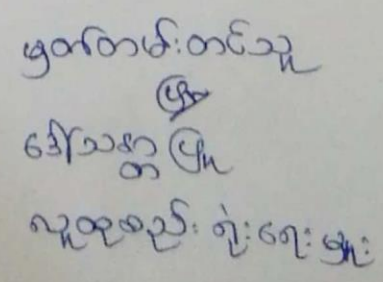 မှတ်တမ်းတင်သူ
မြ
ဒေါ်သန္တာမြ
လူထုစည်းရုံးရေးမှူး